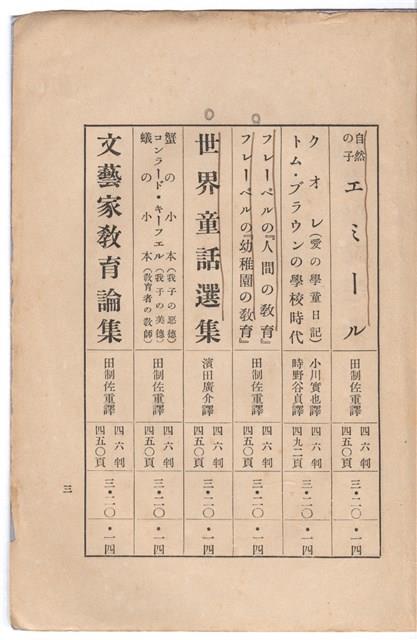 自然の子 エミール
田制佐重譯
四六判
四五〇頁
三・二〇
・一四
クオレ(愛の學童日記)
トム・ブラウンの學校時代
小川實也譯
時野谷貞譯
四六判
四九二頁
三・二〇
・一四
フレーベルの『人間の教育』
フレーベルの『幼稚園の教育』
田制佐重譯
四六判
四五〇頁
三・二〇
・一四
世界童話選集
濱田廣介譯
四六判
四五〇頁
三・二〇
・一四
蟹の小本(我子の惡德)
コンラード・キーフエル(我子の美德)
蟻の小本(教育者の教師)
田制佐重譯
四六判
四五〇頁
三・二〇
・一四
文藝家教育論集
田制佐重譯
四六判
四五〇頁
三・二〇
・一四
三